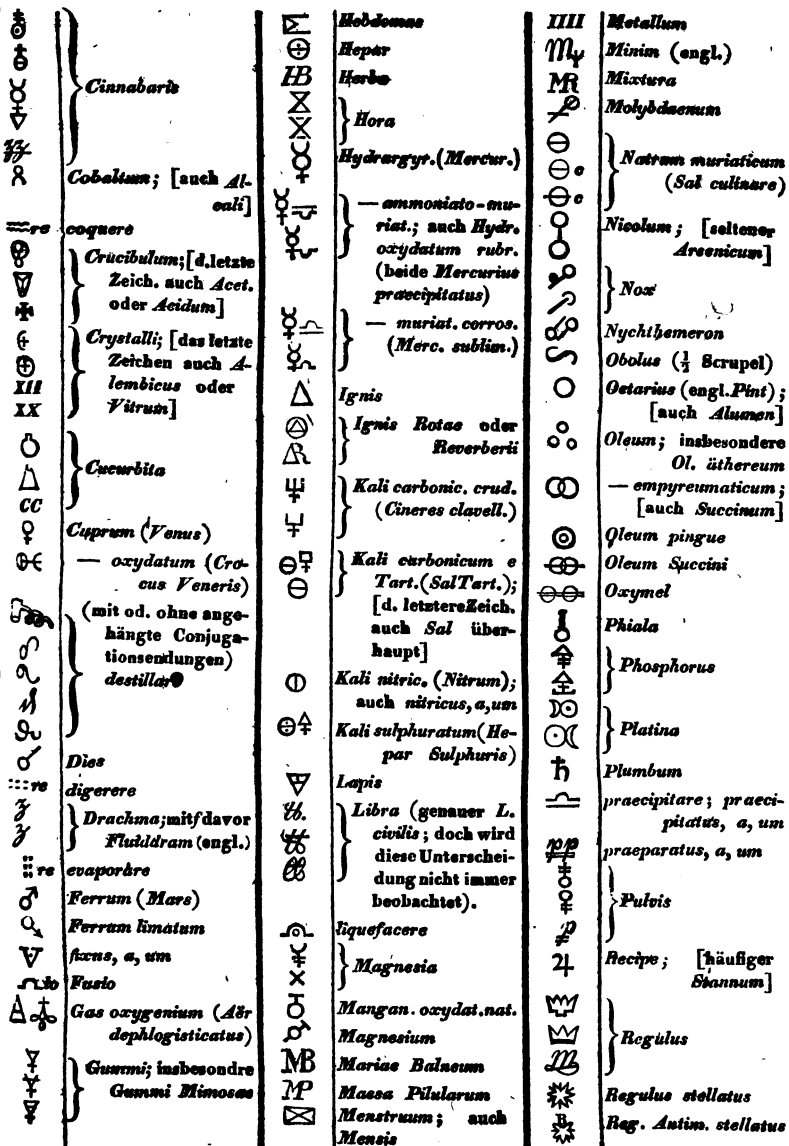 Cinnabaris
Cobaltum; [auch Al-
cali]
re coquere
Crucibulum; [d.letzte
Zeich. auch Acet.
oder Acidum]
Crystalli; [das letzte
Zeichen auch A-
lembicus oder
XII Vitrum]
XX
Cucurbita
CC
Cuprum (Venus)
— oxydatum (Cro-
cus Veneris)
(mit od. ohne ange-
hängte Conjuga-
tionsendungen)
Dies
re digerere
Drachma; mit f davor
Fluiddram (engl.)
re evaporare
Ferrum (Mars)
Ferrum limatum
fixus, a, um
Fusio
Gas oxygenium (Aër
dephlogisticatus)
Gummi; insbesondre
Gummi Mimosae
Hebdomas
Hepar
HB Herba
Hora
Hydrargyr. (Mercur.)
— ammoniato-mu-
riat.; auch Hydr.
oxydatum rubr.
(beide Mercurius
praecipitatus)
— muriat. corros.
(Merc. sublim.)
Ignis
Ignis Rotae oder
Reverberii
Kali carbonic. crud.
(Cineres clavell.)
Kali carbonicum e
Tart. (Sal Tart.);
[d. letztere Zeich.
auch Sal über-
haupt]
Kali nitric. (Nitrum);
auch nitricus, a, um
Kali sulphuratum (He-
par Sulphuris)
Lapis
Libra (genauer L.
civilis; doch wird
diese Unterschei-
dung nicht immer
beobachtet).
liquefacere
Magnesia
Mangan. oxydat. nat.
Magnesium
MB Mariae Balneum
MP Massa Pilularum
Menstruum; auch
Mensis
IIII Metallum
Minim (engl.)
MR Mixtura
Molybdaenum
Natrum muriaticum
(Sal culinare)
Nicolum; [seltener
Arsenicum]
Nox
Nychthemeron
Obolus (½ Scrupel)
Octarius (engl. Pint);
[auch Alumen]
Oleum; insbesondere
Ol. äthereum
— empyreumaticum;
[auch Succinum]
Oleum pingue
Oleum Succini
Oxymel
Phiala
Phosphorus
Platina
Plumbum
praecipitare; praeci-
pitatus, a, um
pp praeparatus, a, um
Pulvis
Recipe; [häufiger
Stannum]
Regulus
Regulus stellatus
Reg. Antim. stellatus